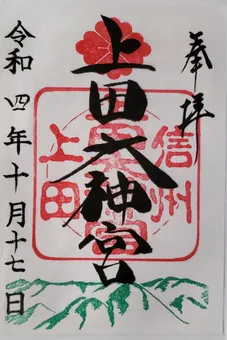 奉拝
上田大神宮
令和四年十月十七日
信州
上田